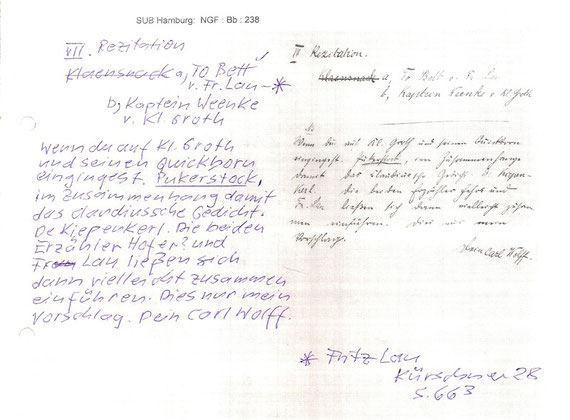 SUB Hamburg: NGF : Bb : 238
VII. Rezitation
Klaensnack a, To Bett
v. Fr. Lau - *
b, Kaptein Weenke
v. Kl. Groth
Wenn du auf Kl. Groth
und seinen Quickborn
eingingest. Pukerstock,
im Zusammenhang damit
das claudiussche Gedicht.
De Kiepenkerl. Die beiden
Erzähler Hofer? und
Lau ließen sich
dann vielleicht zusammen
einführen. Dies nur mein
Vorschlag. Dein Carl Wolff.
Rezitation.
a, To Bett v. Fr. Lau
b, Kaptein Weenke v. Kl. Groth
Wenn du auf Kl. Groth und seinen Quickborn
eingingest Pukerstock, im Zusammenhange
damit das claudiussche Gedicht. D. Kiepen-
kerl. Die beiden Erzähler und
Fr. Lau ließen sich dann vielleicht zusam-
men einführen. Dies nur mein
Vorschlag.
Dein Carl Wolff.
* Fritz Lau
Kürschner 28
S. 663